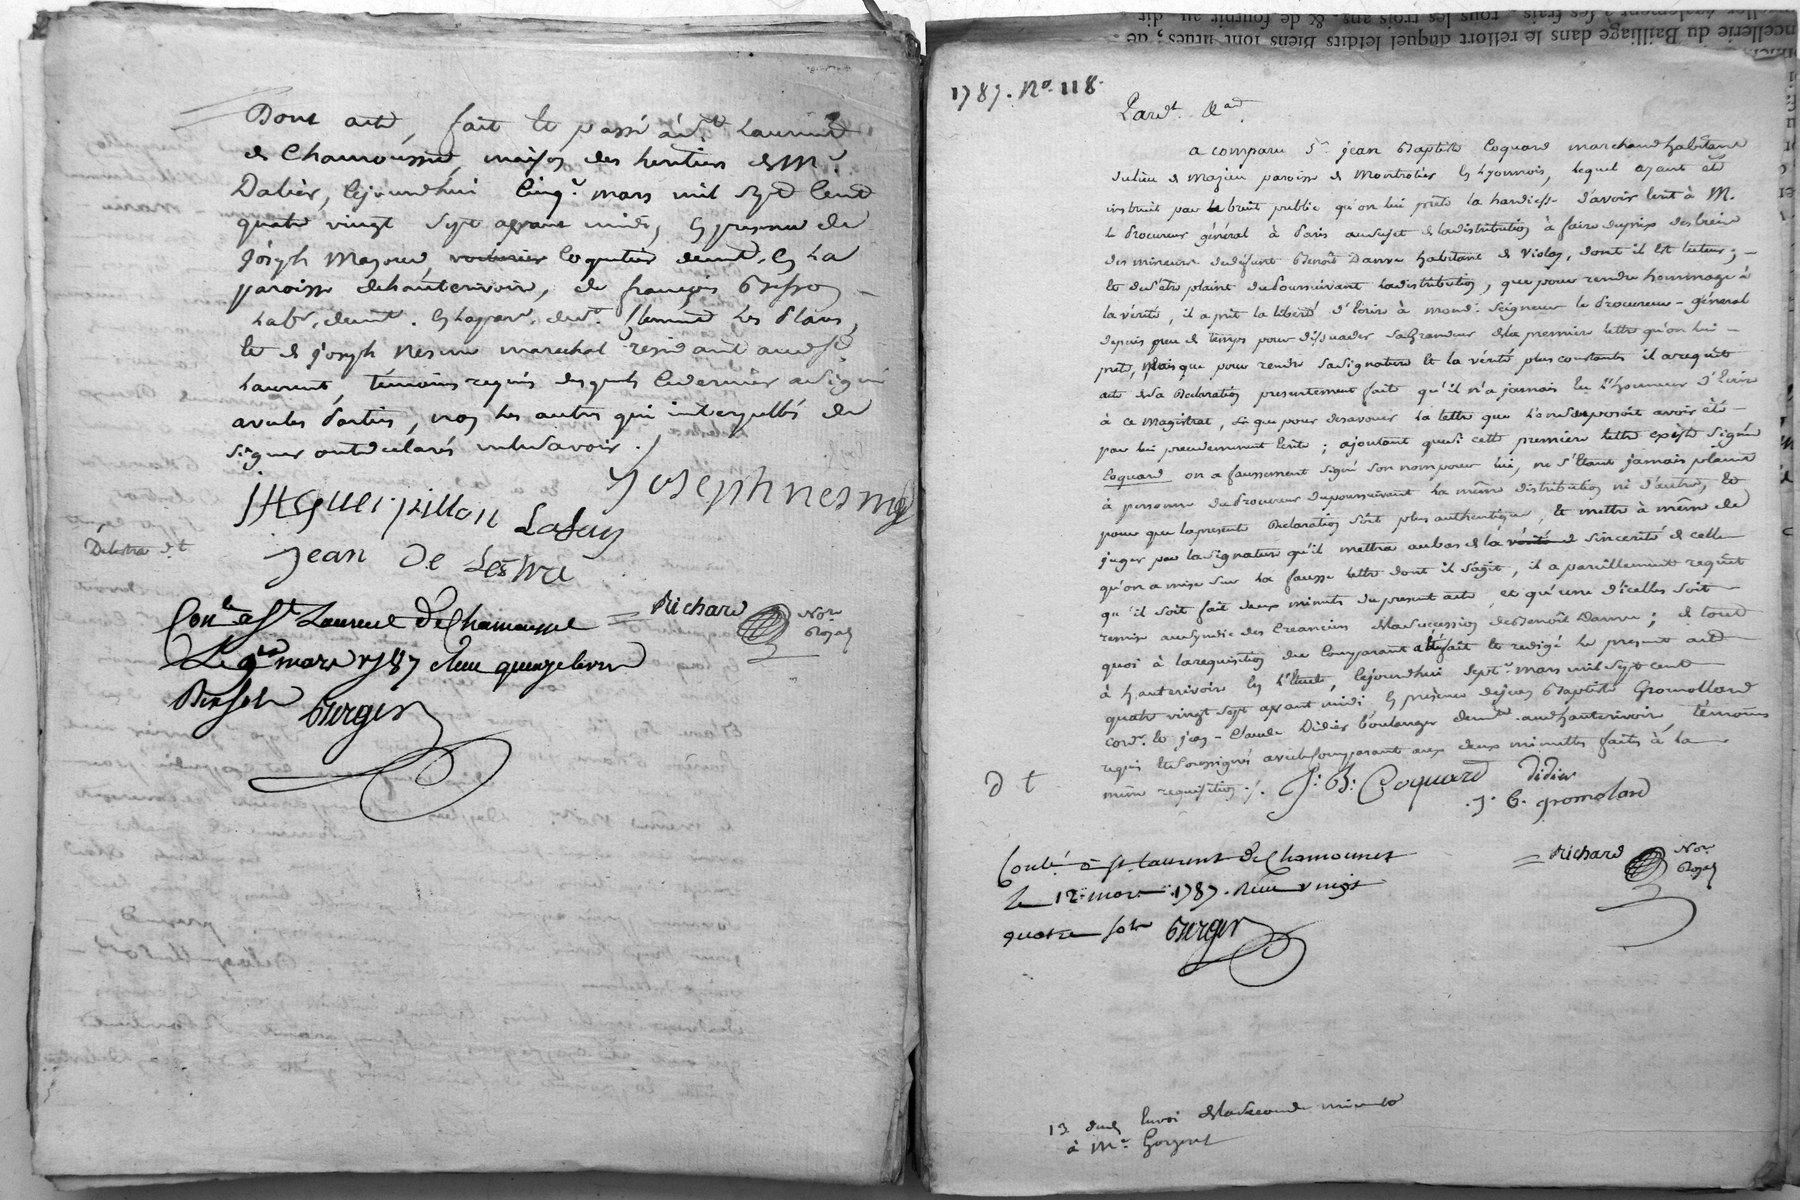 Dont acte, fait et passé à St Laurent
de Chamousset, maison des heritiers de Mr
Dalier, cejourdhui cinqe mars mil sept cent
quatre vingt sept apraint midy, en presence de
joseph Mazord voiturier coquetier demt. en la
paroisse dehauterivoire, de françois Besson
labr. demt. en la par. de St. Clement les Places,
et de joseph Nesme marechal residant audit St
Laurent, témoins requis desquels ce dernier a signé
avec les parties, non les autres qui interpellés de
signer ont declarés ne le savoir ./.
josephnesme
jAquei pillon Lafay
Delestra d t
jean De Lestra
= Richard Nore Royal
Conlé a St Laurent De Chamousset
Le 9 mars 1787 Reçu quinze livres
Dix sols Berger
ncellerie du Bailliage dans le ressort duquel lesdits Biens sont situés ; de
tous les frais, tous les trois ans, & de fournir au dit
1787. No. 118.
Pardt. &a.
a comparu Sr. jean Baptiste Coquard marchand habitant
du lieu de Mazieu paroisse de Montrotier en Lyonnois, lequel ayant été
instruit par le bruit public qu'on lui prete la hardiesse d'avoir écrit à M.
le Procureur général à Paris au sujet de la distribution à faire du prix des biens
des mineurs de defunt Benoît Danve habitant de Violay, dont il est tuteur ; —
et de s'être plaint du poursuivant la distribution, que pour rendre hommage à
la vérité, il a prit la liberté d'écrire à mond. Seigneur le Procureur-général
depuis peu de temps pour dissuader sa Grandeur de la premiere lettre qu'on lui —
prete, mais que pour rendre sa signature et la vérité plus constante il a requit
acte de sa Declaration presentement faite qu'il n'a jamais eu l'honneur d'écrire
à ce magistrat, si que pour desavouer la lettre que l'on supposoit avoir été —
par lui precedemment écrite ; ajoutant que si cette premiere lettre existe signée
Coquard on a faussement signé son nom pour lui, ne s'étant jamais plaint
à personne du Procureur du poursuivant la même distribution ni d'autre, et
pour que la presente Declaration soit plus authentique, et mettre à même de
juger par la signature qu'il mettra au bas de la vérité et sincerité de celle
qu'on a mise sur la fausse lettre dont il s'agit, il a pareillement requit
qu'il soit fait deux minutes du present acte, et qu'une d'icelles soit
remise au Syndic des Creanciers de la succession de Benoît Danve ; de tout
quoi à la requisition du Comparant a été fait et redigé le present acte
à hauterivoire en l'étude, cejourdhui septe. mars mil sept cent
quatre vingt sept apraint midi en presence de jean Baptiste Gromollard
cordr. et jean-Claude Didier boulanger demts. aud. hauterivoire, témoins
requis et soussignés avec le comparant aux deux minuttes faites à la
même requisition ./. J: B: Coquard Didier
d t
J. B. gromolard
Conlé à St Laurent De Chamousset
le 12 mars 1787. Reçu vingt
quatre sols Berger
= Richard Nore Royal
13 dud. envoi de la seconde minute
à Mr.